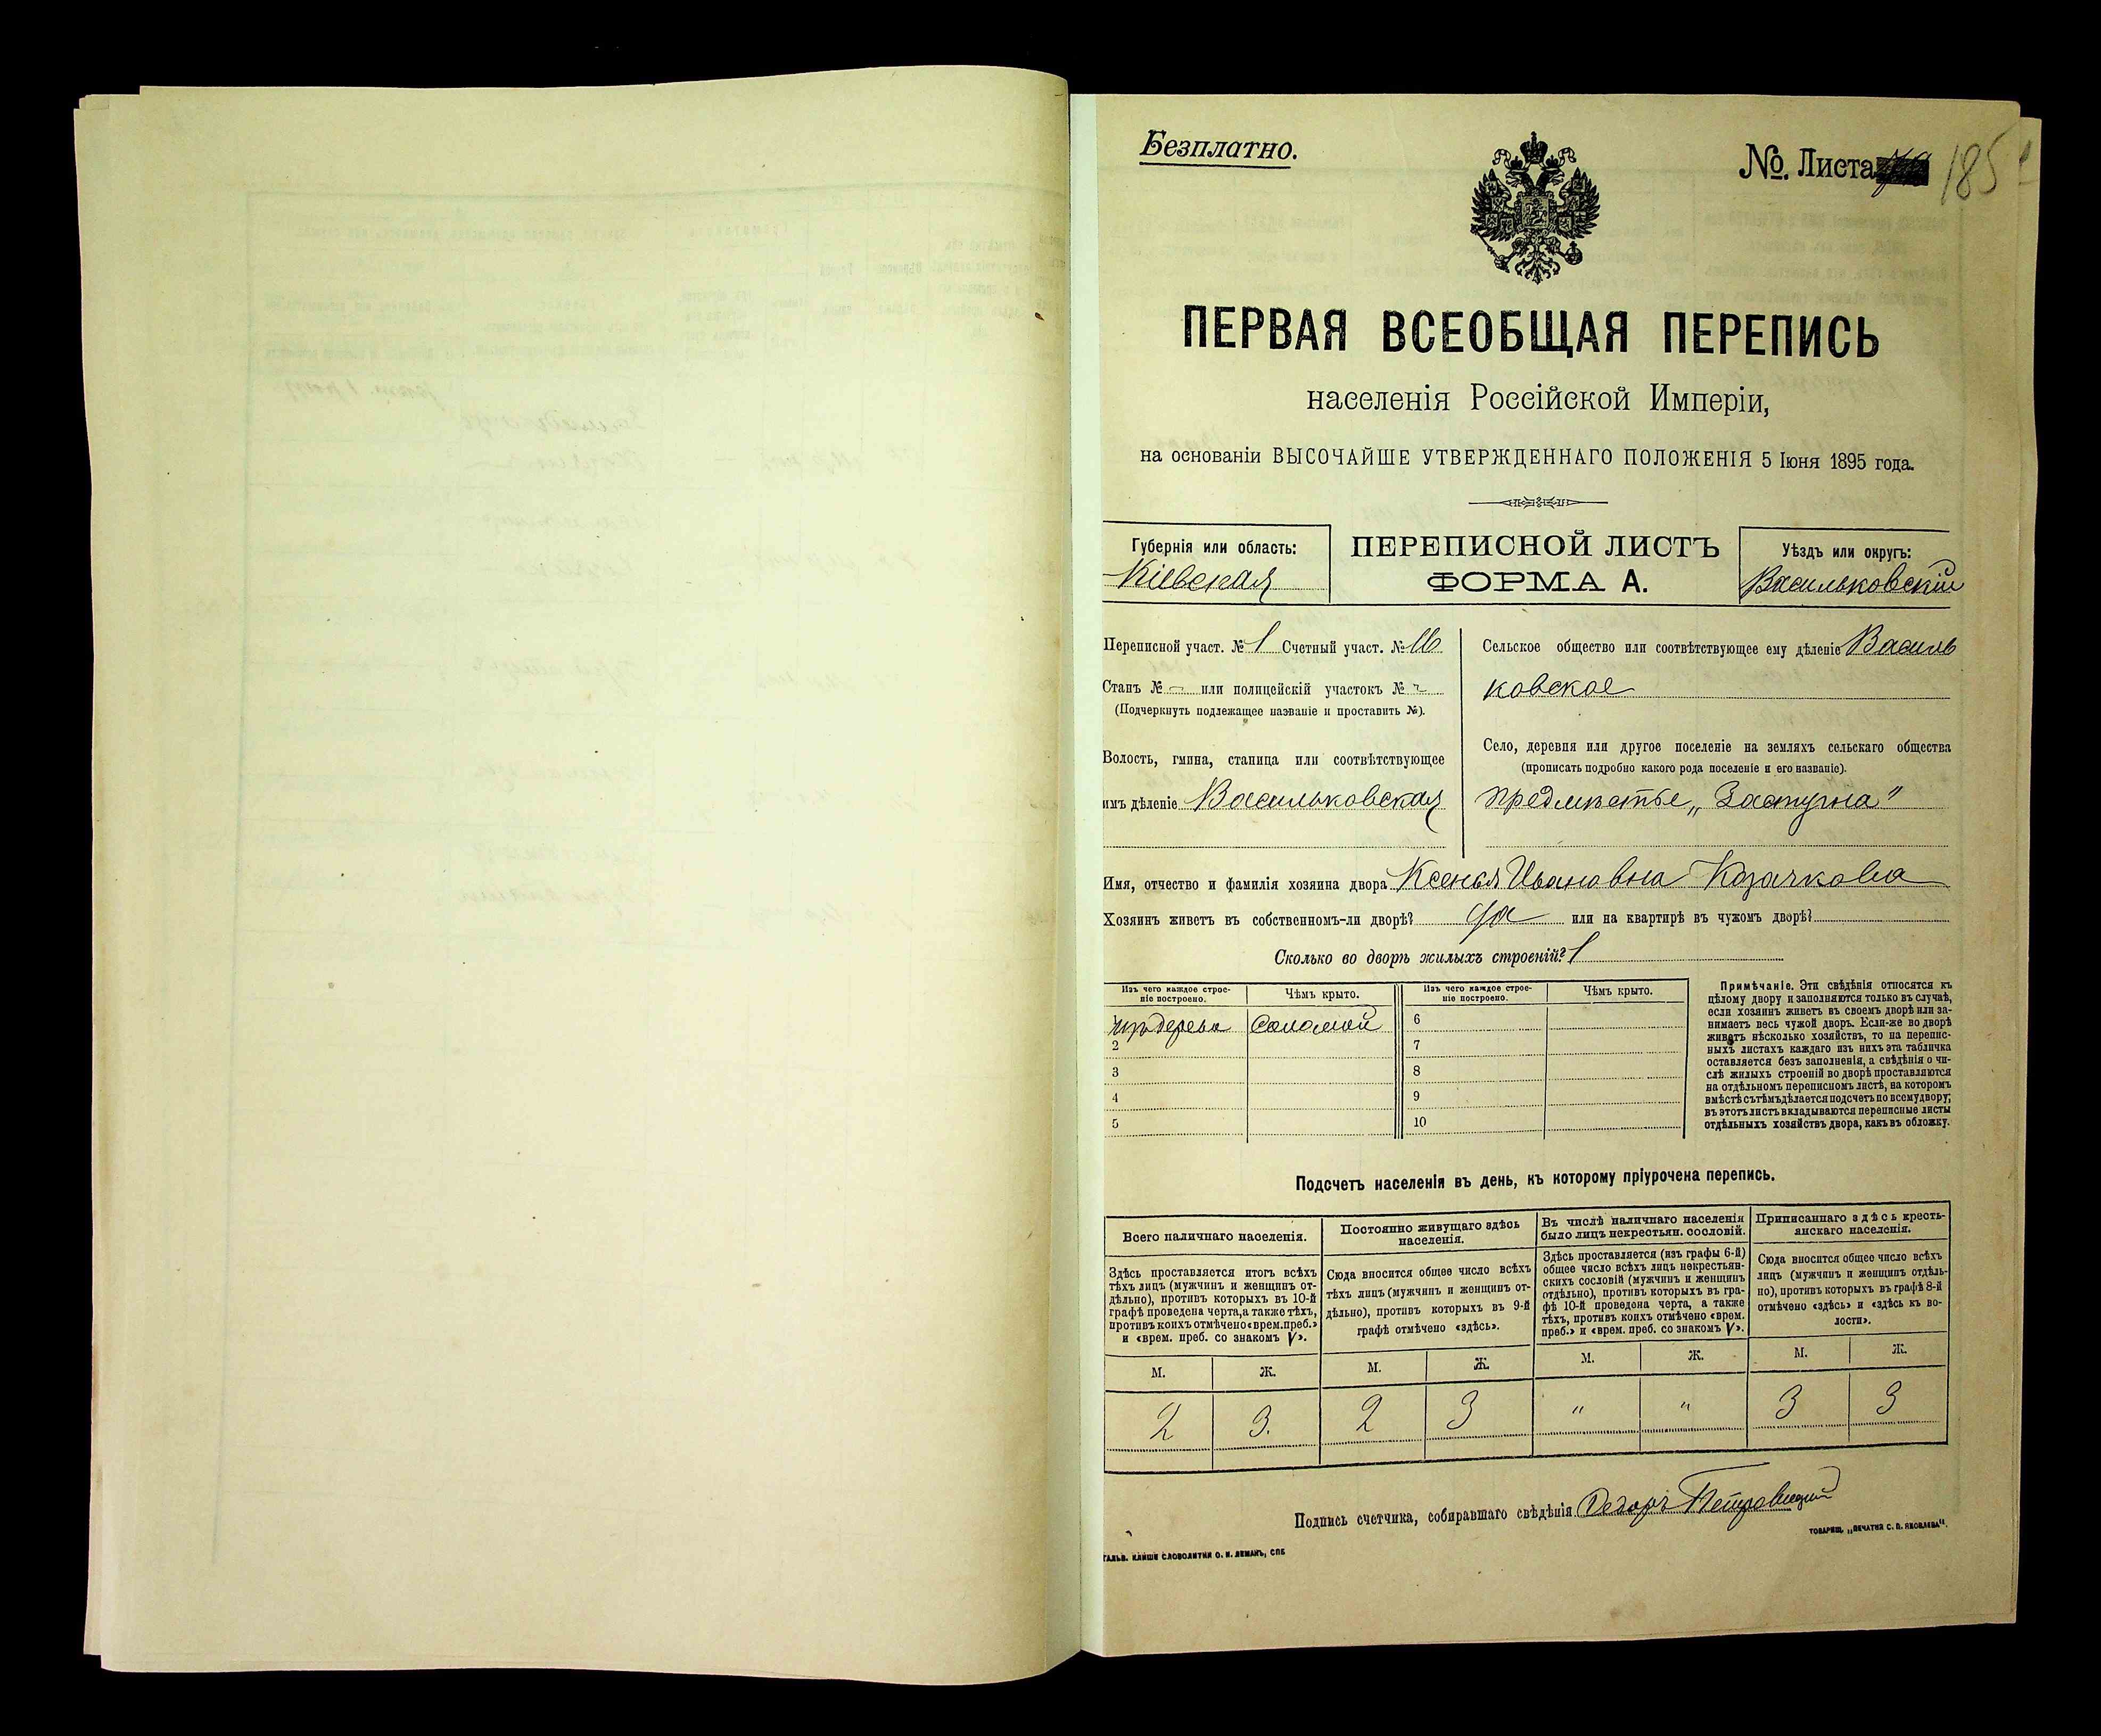 Безплатно.
№. Листа 185
ПЕРВАЯ ВСЕОБЩАЯ ПЕРЕПИСЬ
населенія Россійской Имперіи,
на основаніи ВЫСОЧАЙШЕ УТВЕРЖДЕННАГО ПОЛОЖЕНІЯ 5 Іюня 1895 года.
Губернія или область:
Кіевская
ПЕРЕПИСНОЙ ЛИСТЪ
ФОРМА А.
Уѣздъ или округъ:
Васильковскій
Переписной участ. № 1 Счетный участ. № 16
Станъ № — или полицейскій участокъ №
(Подчеркнуть подлежащее названіе и проставить №).
Волость, гмина, станица или соотвѣтствующее
имъ дѣленіе Васильковская
Сельское общество или соотвѣтствующее ему дѣленіе Василь
ковское
Село, деревня или другое поселеніе на земляхъ сельскаго общества
(прописать подробно какого рода поселеніе и его названіе).
предмѣстье „Застугна"
Имя, отчество и фамилія хозяина двора Ксенья Ивановна Козачкова
Хозяинъ живетъ въ собственномъ-ли дворѣ? да или на квартирѣ въ чужомъ дворѣ?
Сколько во дворѣ жилыхъ строеній? 1
Изъ чего каждое строе-
ніе построено.
Чѣмъ крыто.
Изъ чего каждое строе-
ніе построено.
Чѣмъ крыто.
1 изъ дерева Соломой 6
2 7
3 8
4 9
5 10
Примѣчаніе. Эти свѣдѣнія относятся къ
цѣлому двору и заполняются только въ случаѣ,
если хозяинъ живетъ въ своемъ дворѣ или за-
нимаетъ весь чужой дворъ. Если-же во дворѣ
живетъ нѣсколько хозяйствъ, то на перепис-
ныхъ листахъ каждаго изъ нихъ эта табличка
оставляется безъ заполненія, а свѣдѣнія о чи-
слѣ жилыхъ строеній во дворѣ проставляются
на отдѣльномъ переписномъ листѣ, на которомъ
вмѣстѣ съ тѣмъ дѣлается подсчетъ по всему двору;
въ этотъ листъ вкладываются переписные листы
отдѣльныхъ хозяйствъ двора, какъ въ обложку.
Подсчетъ населенія въ день, къ которому пріурочена перепись.
Всего наличнаго населенія.
Здѣсь проставляется итогъ всѣхъ
тѣхъ лицъ (мужчинъ и женщинъ от-
дѣльно), противъ которыхъ въ 10-й
графѣ проведена черта, а также тѣхъ,
противъ коихъ отмѣчено «врем. преб.»
и «врем. преб. со знакомъ V».
Постоянно живущаго здѣсь
населенія.
Сюда вносится общее число всѣхъ
тѣхъ лицъ (мужчинъ и женщинъ от-
дѣльно), противъ которыхъ въ 9-й
графѣ отмѣчено «здѣсь».
Въ числѣ наличнаго населенія
было лицъ некрестьян. сословій.
Здѣсь проставляется (изъ графы 6-й)
общее число всѣхъ лицъ некрестьян-
скихъ сословій (мужчинъ и женщинъ
отдѣльно), противъ которыхъ въ гра-
фѣ 10-й проведена черта, а также
тѣхъ, противъ коихъ отмѣчено «врем.
преб.» и «врем. преб. со знакомъ V».
Приписаннаго здѣсь кресть-
янскаго населенія.
Сюда вносится общее число всѣхъ
лицъ (мужчинъ и женщинъ отдѣль-
но), противъ которыхъ въ графѣ 8-й
отмѣчено «здѣсь» и «здѣсь къ во-
лости».
М. Ж. М. Ж. М. Ж. М. Ж.
2 3. 2 3 " " 3 3
Подпись счетчика, собиравшаго свѣдѣнія
ТОВАРИЩ. „ПЕЧАТНЯ С. П. ЯКОВЛЕВА".
ГАЛЬВ. КЛИШЕ СЛОВОЛИТНИ О. И. ЛЕМАНЪ, СПБ